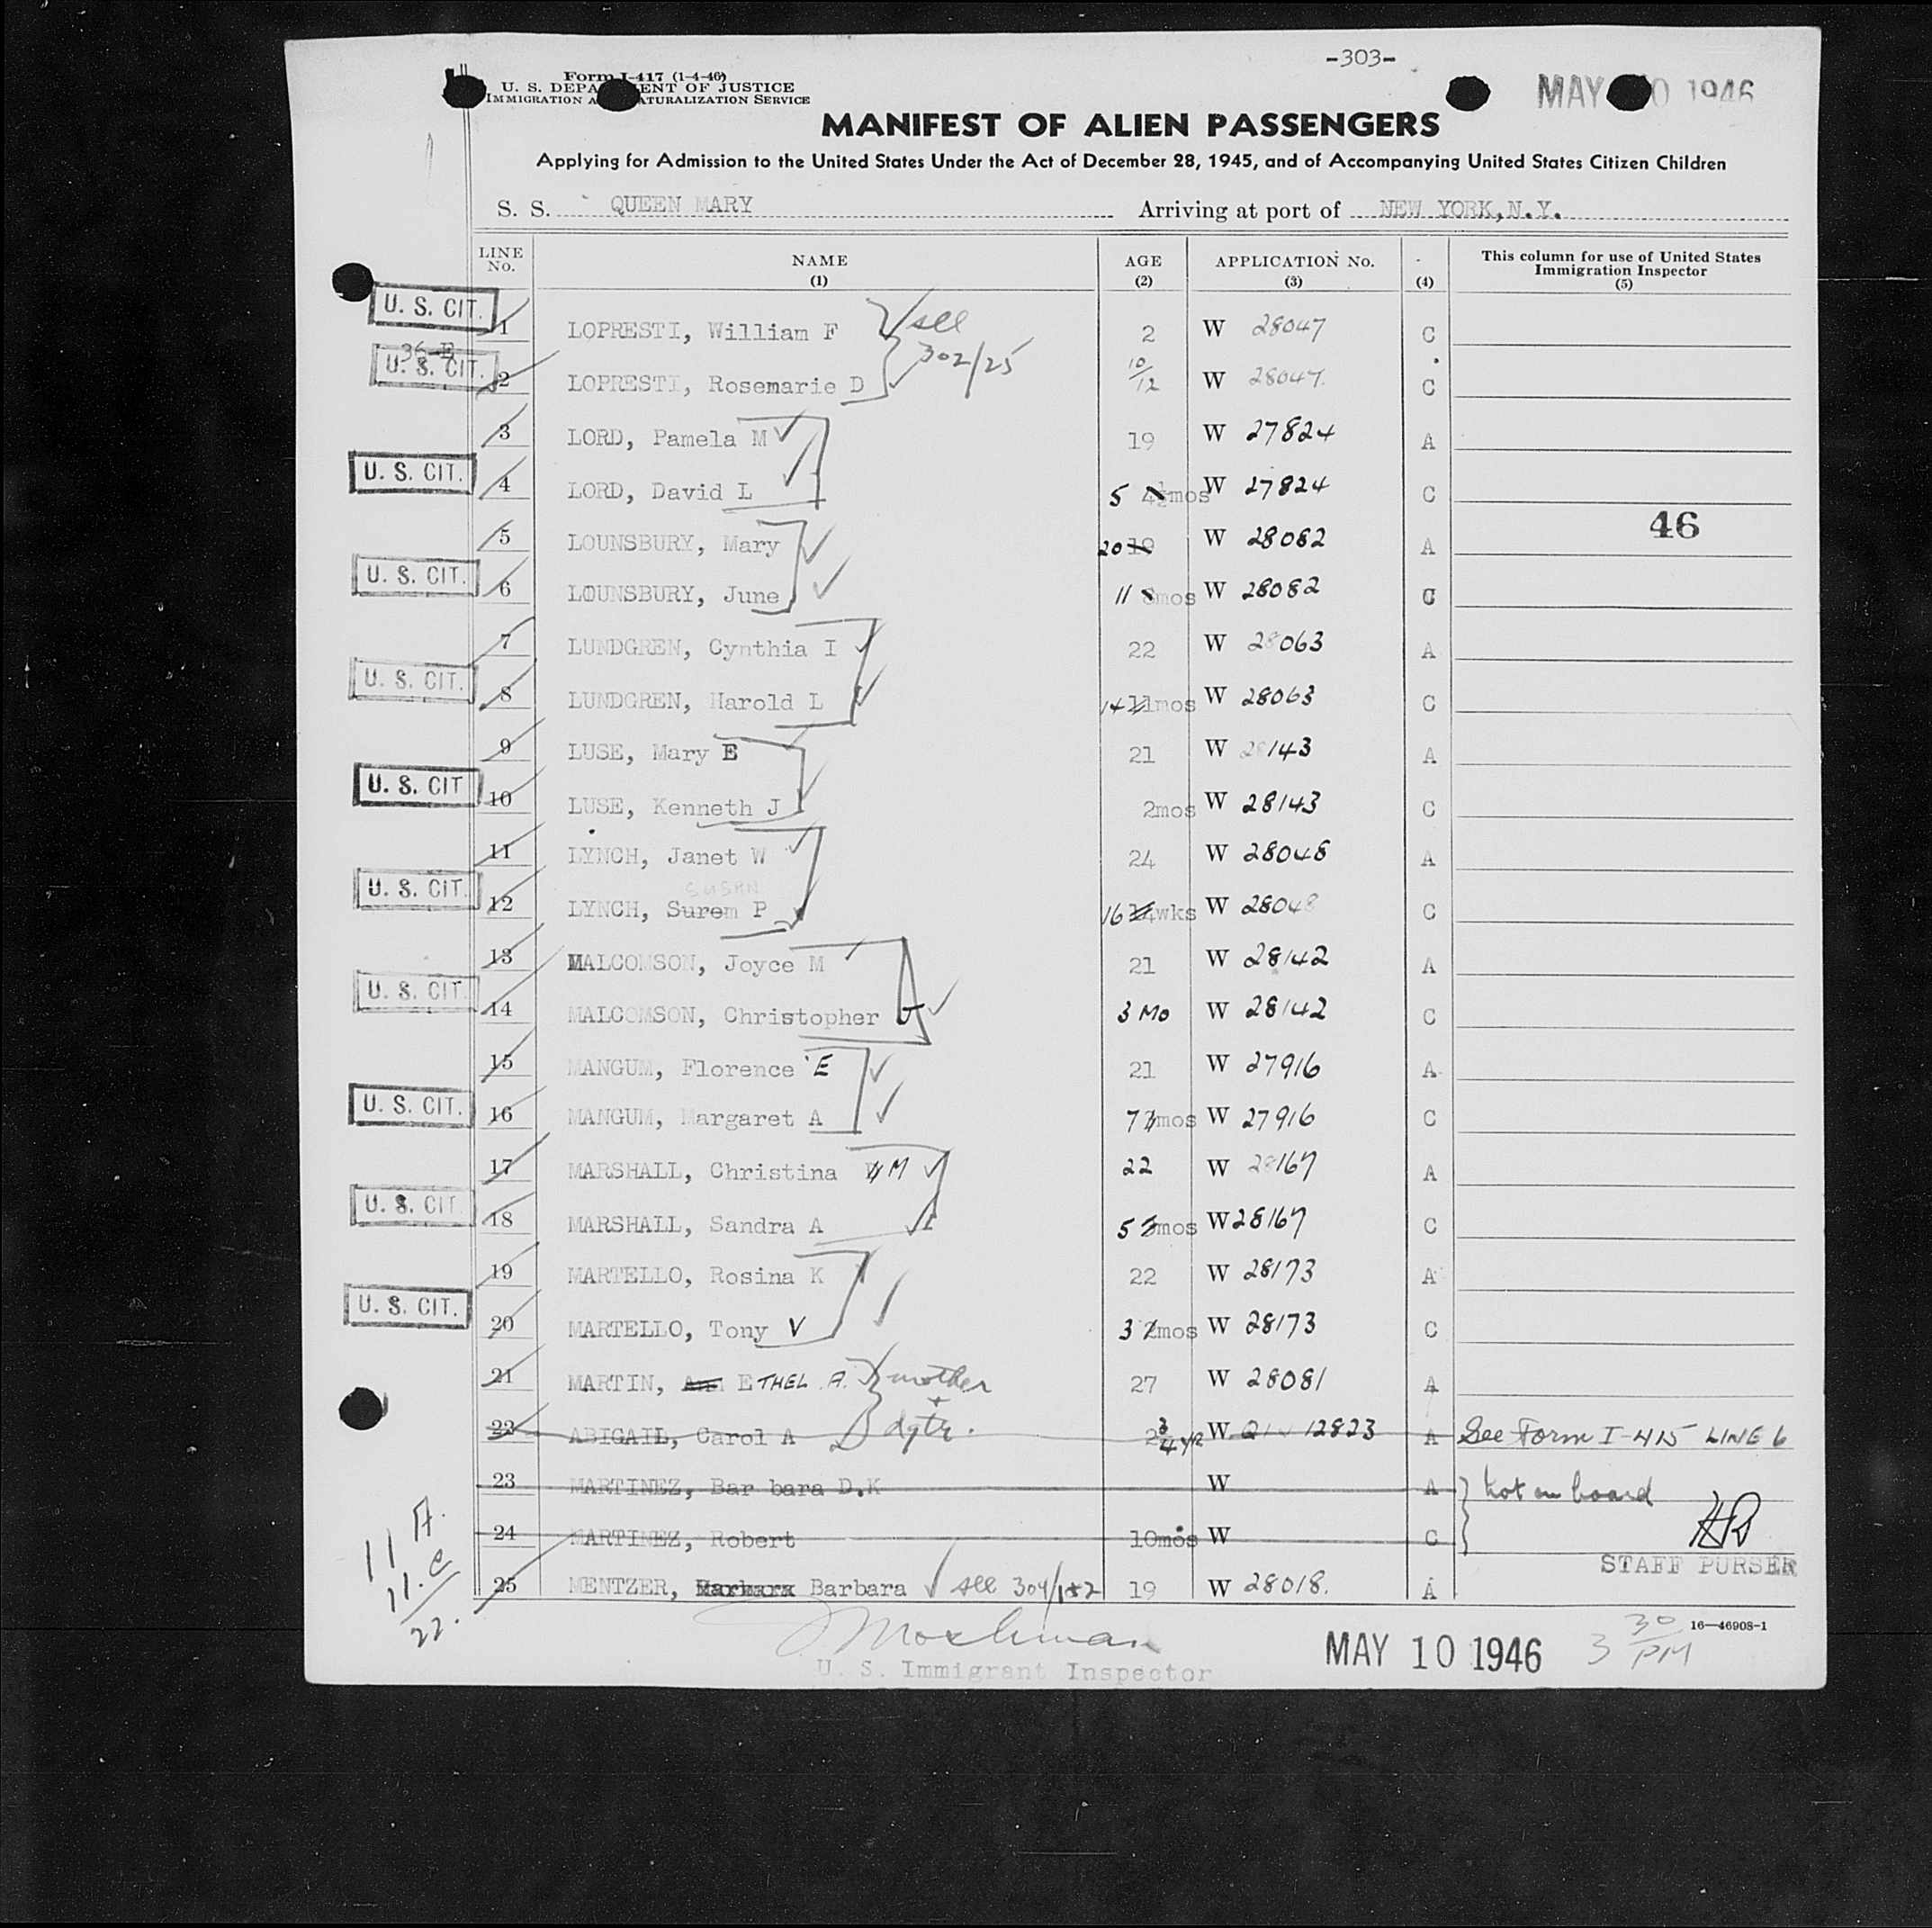 -303-
Form I-417 (1-4-46)
U. S. DEPA ENT OF JUSTICE
IMMIGRATION A ATURALIZATION SERVICE
MAY 0 1946
MANIFEST OF ALIEN PASSENGERS
Applying for Admission to the United States Under the Act of December 28, 1945, and of Accompanying United States Citizen Children
S. S. QUEEN MARY Arriving at port of NEW YORK, N.Y.
LINE No. NAME (1) AGE (2) APPLICATION No. (3) (4) This column for use of United States Immigration Inspector (5)
U. S. CIT. 1 LOPRESTI, William F see 2 W 28047 C
36-B
U. S. CIT. 2 LOPRESTI, Rosemarie D 302/25 10/12 W 28047 C
3 LORD, Pamela M 19 W 27824 A
U. S. CIT. 4 LORD, David L 5 mos W 27824 C
46
5 LOUNSBURY, Mary 20 19 W 28082 A
U. S. CIT. 6 LOUNSBURY, June 11 mos W 28082 C
7 LUNDGREN, Cynthia I 22 W 28063 A
U. S. CIT. 8 LUNDGREN, Harold L 14 11mos W 28063 C
9 LUSE, Mary E 21 W 28143 A
U. S. CIT 10 LUSE, Kenneth J 2mos W 28143 C
11 LYNCH, Janet W 24 W 28048 A
SUSAN
U. S. CIT. 12 LYNCH, Surem P 16 14wks W 28048 C
13 MALCOMSON, Joyce M 21 W 28142 A
U. S. CIT. 14 MALCOMSON, Christopher 3 Mo W 28142 C
15 MANGUM, Florence E 21 W 27916 A
U. S. CIT. 16 MANGUM, Margaret A 7 mos W 27916 C
17 MARSHALL, Christina M 22 W 28167 A
U. S. CIT 18 MARSHALL, Sandra A 5 3mos W 28167 C
19 MARTELLO, Rosina K 22 W 28173 A
U. S. CIT. 20 MARTELLO, Tony V 3 2mos W 28173 C
21 MARTIN, Ann ETHEL A. mother 27 W 28081 A
+
22 ABIGAIL, Carol A dgtr. 2 3/4 yr W 12823 A See Form I-415 LINE 6
23 MARTINEZ, Bar bara D.K W A not on board
24 MARTINEZ, Robert 10mos W C
STAFF PURSER
25 MENTZER, Barbara see 304/1+2 19 W 28018. A
11 A.
11. C
22.
Moshman
U. S. Immigrant Inspector
MAY 10 1946
3 30 PM
16—46908-1